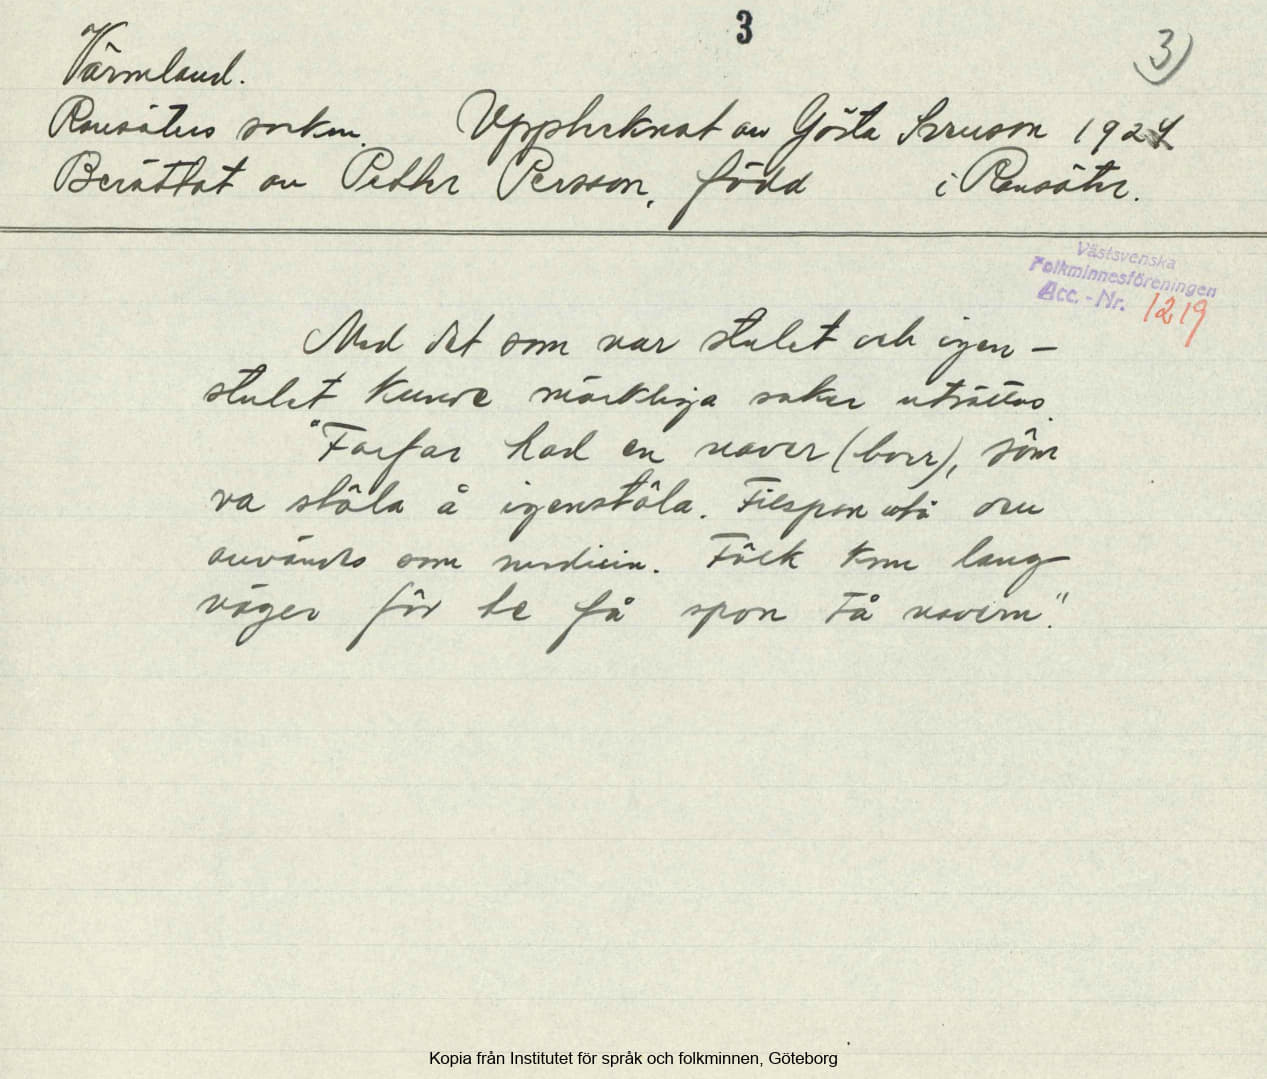 3
3)
Värmland.
Ransäters socken. Upptecknat av Gösta Ivruson 1924
Berättat av Petter Persson, född i Ransäter.
Västsvenska
Folkminnesföreningen
Acc.-Nr. 1219
Med det som var stulet och igen-
stulet kunde märkliga saker uträttas.
"Farfar had en naver (borr), sôm
va stôla å igenstôla. Filspon utå den
användes som medicin. Fôlk kom lang
väger för te få spon tå navern".
Kopia från Institutet för språk och folkminnen, Göteborg